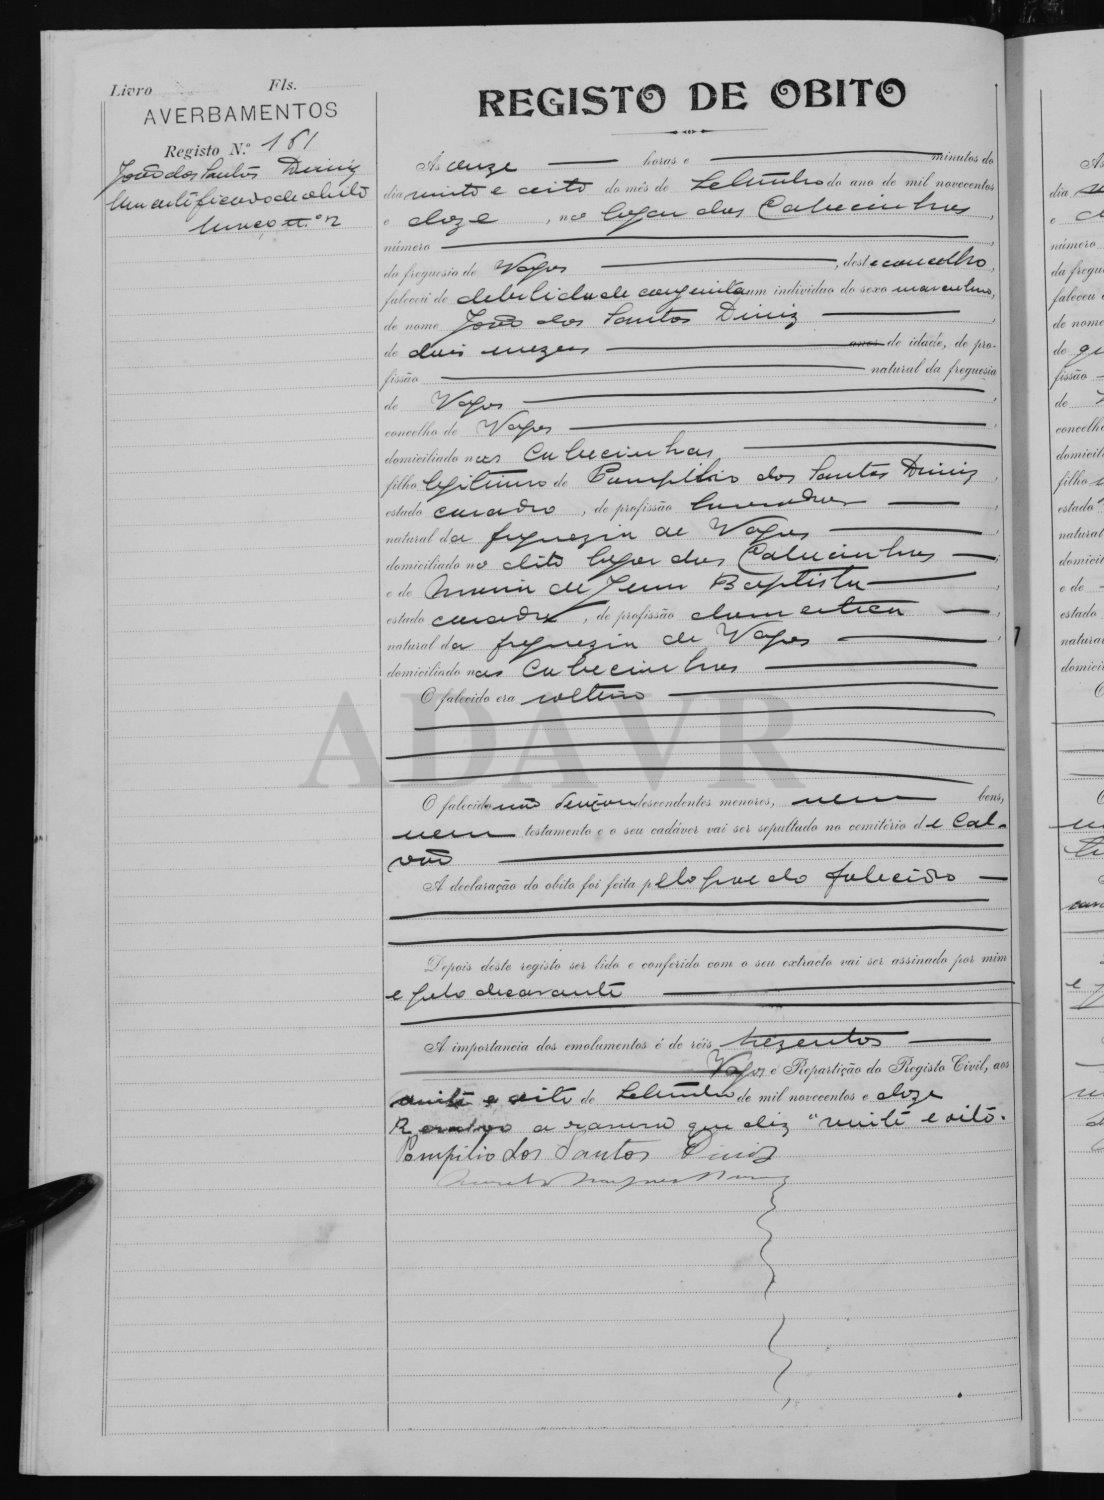 Livro Fls.
AVERBAMENTOS
Registo N.º 181
João dos Santos Diniz
Um certificado de obito
maço n.º 12
REGISTO DE OBITO
Ás onze horas e minutos do
dia vinte e oito do mês de Setembro do ano de mil novecentos
e doze, no logar das Cabecinhas,
número
da freguesia de Vagos, deste concelho,
faleceu de debilidade congenita um individuo do sexo masculino,
de nome João dos Santos Diniz,
de dois mezes anos de idade, de pro-
fissão natural da freguesia
de Vagos,
concelho de Vagos,
domiciliado nas Cabecinhas
filho legitimo de Pompilio dos Santos Diniz,
estado casado, de profissão lavrador,
natural da freguezia de Vagos,
domiciliado no dito logar das Cabecinhas;
e de Maria de Jesus Baptista
estado casada, de profissão domestica,
natural da freguezia de Vagos,
domiciliado nas Cabecinhas
O falecido era solteiro
ADAVR
O falecido não deixou descendentes menores, nem bens,
nem testamento e o seu cadáver vai ser sepultado no cemitério de Cal-
vão
A declaração do obito foi feita pelo pae do falecido
Depois deste registo ser lido e conferido com o seu extracto vai ser assinado por mim
e pelo decarante
A importancia dos emolumentos é de réis trezentos
Vagos e Repartição do Registo Civil, aos
vinte e oito de Setembro de mil novecentos e doze
Resalvo a rasura que diz "vinte e oito.
Pompilio dos Santos Diniz